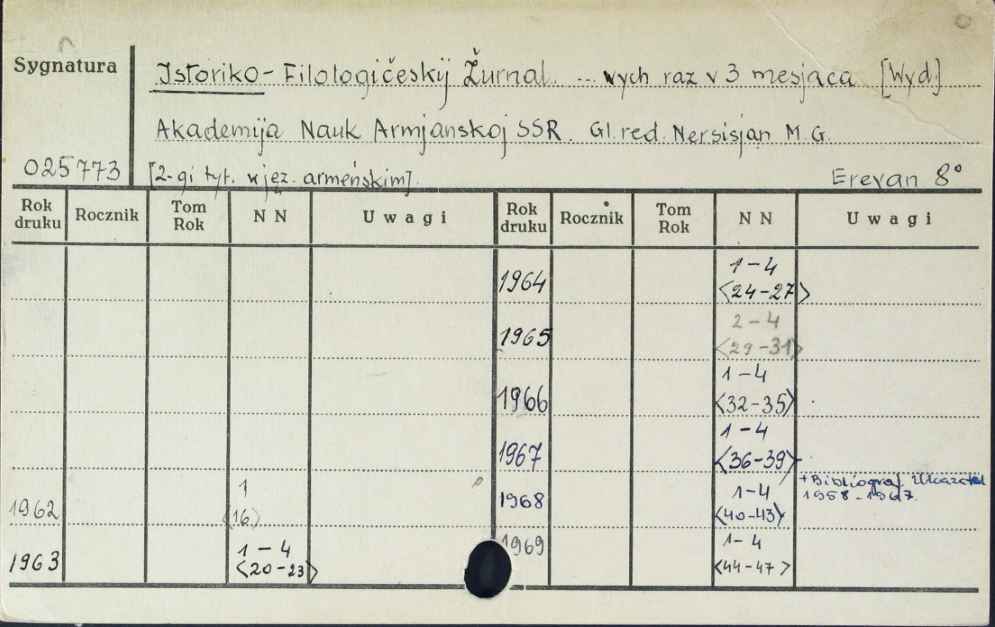 Sygnatura
Istoriko-Filologičeskij Žurnal ... wych raz v 3 mesjaca [Wyd.]
Akademija Nauk Armjanskoj SSR. Gl. red. Nersisjan M. G.
025773 [2-gi tyt. w jęz. armeńskim]. Erevan 8°
Rok druku Rocznik Tom Rok NN Uwagi Rok druku Rocznik Tom Rok NN Uwagi
1964 1-4 <24-27>
1965 2-4 <29-31>
1966 1-4 <32-35>
1967 1-4 <36-39>
1962 1 <16> 1968 1-4 <40-43> + Bibliograf. Ukazatel 1958-1967
1963 1-4 <20-23> 1969 1-4 <44-47>